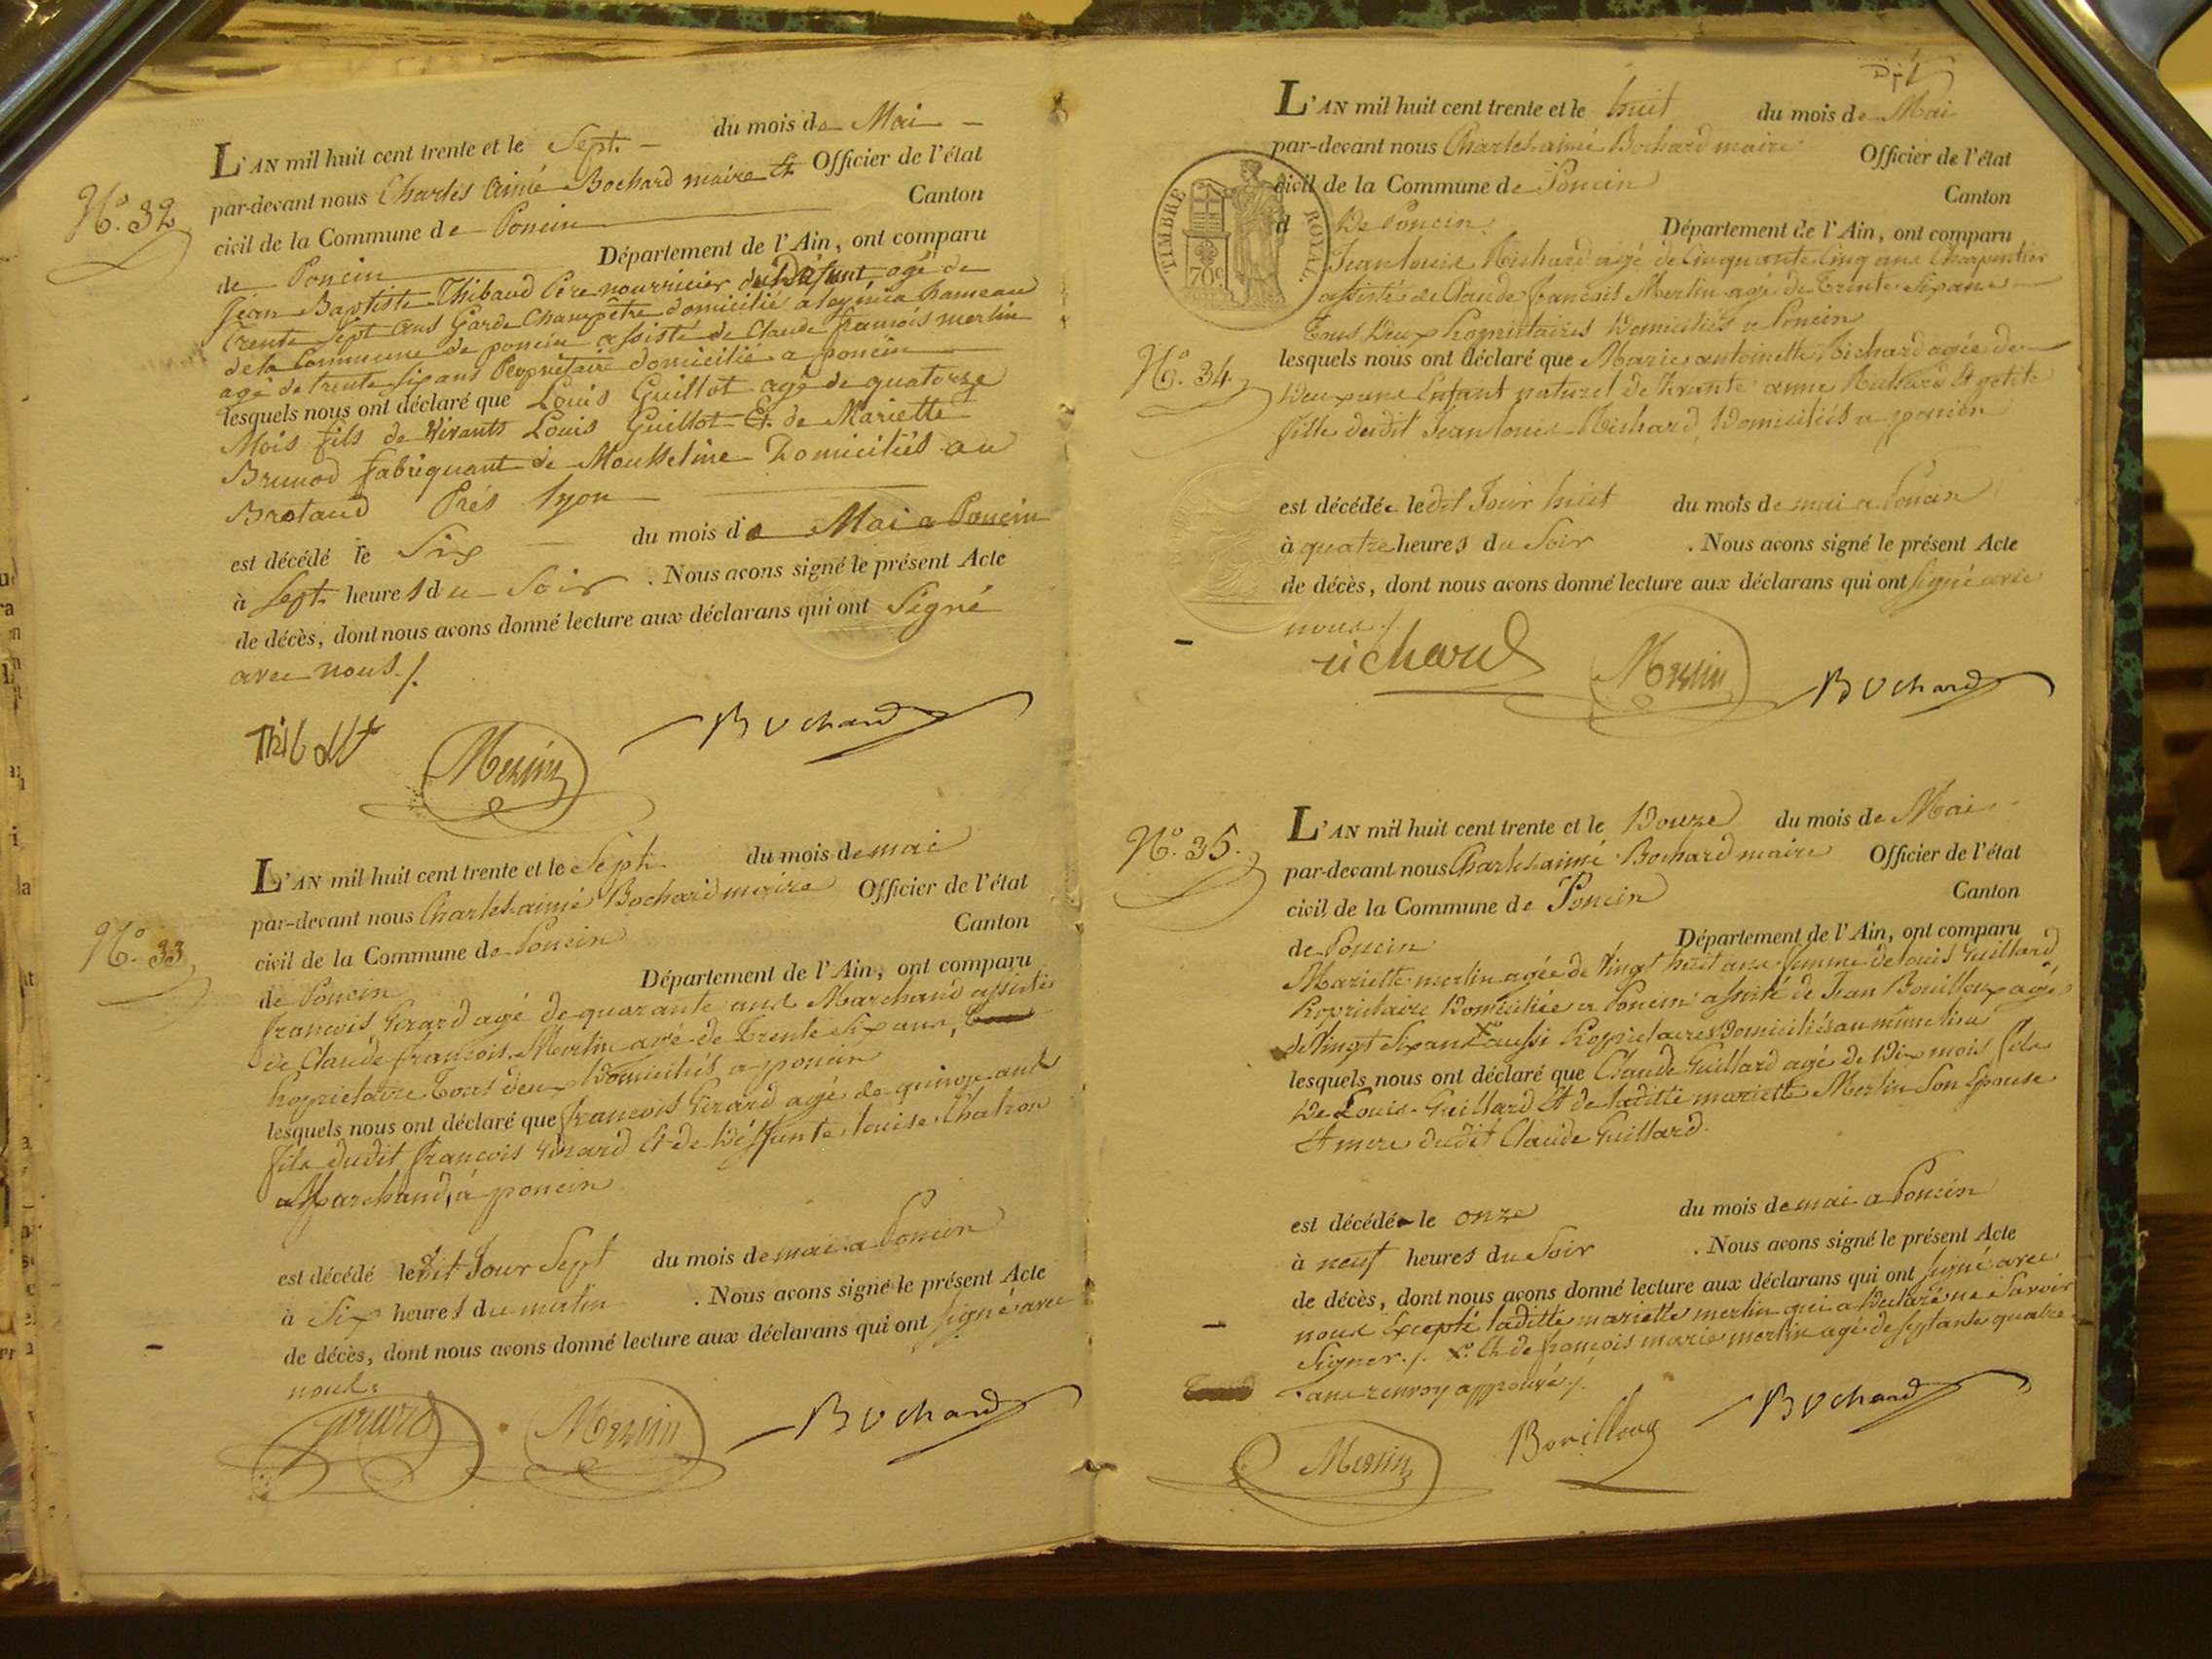 L'AN mil huit cent trente et le Sept. du mois de Mai
par-devant nous Charles Aimé Bochard maire Et Officier de l'état
civil de la Commune de Poncin Canton
de Poncin Département de l'Ain, ont comparu
Jean Baptiste Thibaud Père nourricier du Défunt agé de
trente Sept ans Garde Champêtre domicilié a hameau
de la Commune de poncin assisté de Claude françois merlin
agé de trente six ans Propriétaire domicilié a poncin
lesquels nous ont déclaré que Louis Guillot agé de quatorze
Mois fils de Vivants Louis Guillot Et de Mariette
Brunod fabriquant de Mousseline Domiciliés au
Brotaud Prés Lyon
est décédé le Six du mois de Mai a Poncin
à Sept heures du Soir . Nous avons signé le présent Acte
de décès, dont nous avons donné lecture aux déclarans qui ont Signé
avec nous ./.
N.º 32
Thibaut Merlin Bochard
L'AN mil huit cent trente et le Sept du mois de mai
par-devant nous Charles aimé Bochard maire Officier de l'état
civil de la Commune de Poncin Canton
de Poncin Département de l'Ain, ont comparu
francois Girard agé de quarante ans Marchand assisté
de Claude francois Merlin agé de Trente Six ans,
Propriétaire Tous deux Domiciliés a poncin
lesquels nous ont déclaré que francois Girard agé de quinze ans
fils dudit francois Girard Et de Déffunte Louise Chatron
Marchand, à poncin
est décédé ledit Jour Sept du mois de mai a Poncin
à Six heures du matin . Nous avons signé le présent Acte
de décès, dont nous avons donné lecture aux déclarans qui ont signé avec
nous.
N.º 33
Girard Merlin Bochard
L'AN mil huit cent trente et le huit du mois de Mai
par-devant nous Charles aimé Bochard maire Officier de l'état
civil de la Commune de Poncin Canton
d De Poncin. Département de l'Ain, ont comparu
TIMBRE ROYAL
70c
Jean louis Richard agé de Cinquante Cinq ans Charpentier
assisté de Claude francois Merlin agé de Trente Six ans
Tous Deux Propriétaires Domiciliés a Poncin
lesquels nous ont déclaré que Marie antoinette Richard agée de
Deux ans Enfant naturel de Vivante anne Richard Et petite
fille dudit Jean louis Richard, Domiciliés a poncin
N.º 34.
est décédée ledit Jour huit du mois de mai a Poncin
à quatre heures du Soir . Nous avons signé le présent Acte
de décès, dont nous avons donné lecture aux déclarans qui ont signé avec
nous ./.
richard Merlin Bochard
L'AN mil huit cent trente et le Douze du mois de Mai
par-devant nous Charles aimé Bochard maire Officier de l'état
civil de la Commune de Poncin Canton
de Poncin Département de l'Ain, ont comparu
N.º 35.
Mariette merlin agée de Vingt huit ans femme de Louis Guillard
Propriétaire Domiciliée a Poncin assisté de Jean Bouilloux agé
de Vingt Six ans X aussi Propriétaires Domiciliés au même lieu
lesquels nous ont déclaré que Claude Guillard agé de Dix mois fils
De Louis Guillard Et de laditte mariette Merlin Son Epouse
Et mere dudit Claude Guillard.
est décédé le onze du mois de mai a Poncin
à neuf heures du Soir . Nous avons signé le présent Acte
de décès, dont nous avons donné lecture aux déclarans qui ont signé avec
nous Excepté laditte mariette merlin qui a Déclaré ne Savoir
Signer ./. X. Et de francois marie merlin agé de septante quatre
ans renvoy approuvé ./.
Merlin Bouilloux Bochard